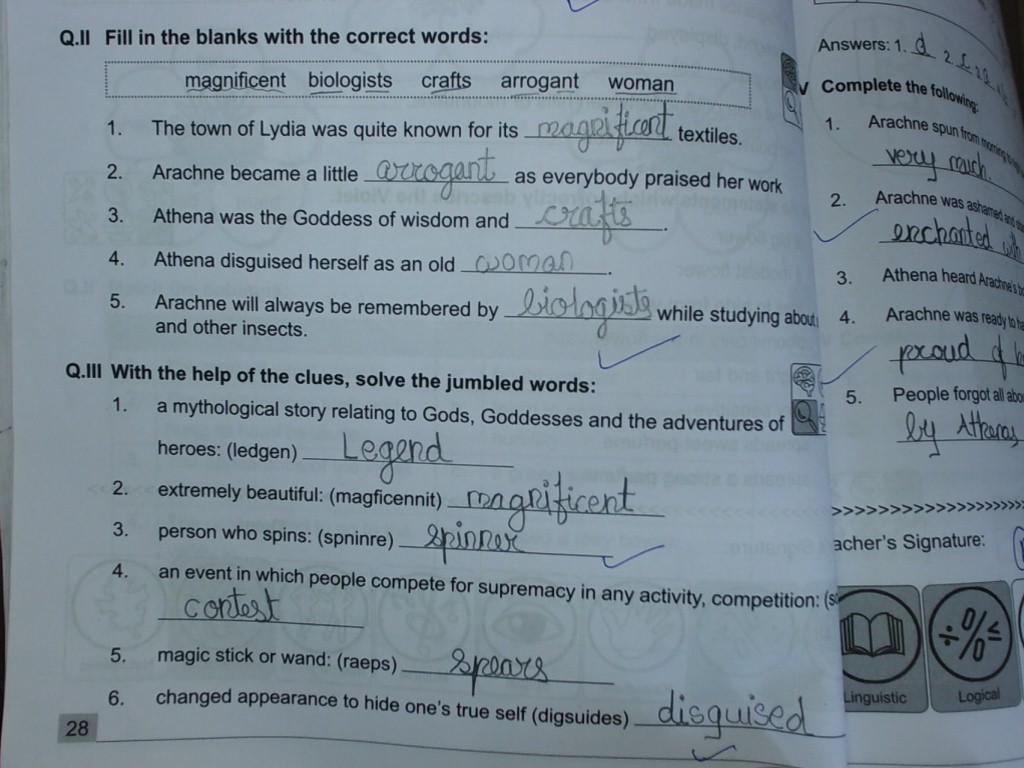 Q.II Fill in the blanks with the correct words:
magnificent biologists crafts arrogant woman
1. The town of Lydia was quite known for its magnificent textiles.
2. Arachne became a little arrogant as everybody praised her work
3. Athena was the Goddess of wisdom and crafts.
4. Athena disguised herself as an old woman.
5. Arachne will always be remembered by biologists while studying about
and other insects.
Q.III With the help of the clues, solve the jumbled words:
1. a mythological story relating to Gods, Goddesses and the adventures of
heroes: (ledgen) Legend
2. extremely beautiful: (magficennit) magnificent
3. person who spins: (spninre) spinner
4. an event in which people compete for supremacy in any activity, competition:
contest
5. magic stick or wand: (raeps) spears
6. changed appearance to hide one's true self (digsuides) disguised
28
Answers: 1. d 2. c
Complete the following:
1. Arachne spun from morning
very much.
2. Arachne was ashamed and
enchanted with
3. Athena heard Arachne's
4. Arachne was ready to
proud of
5. People forgot all
by
>>>>>>>>>>>>>>>>>>>>
acher's Signature:
Linguistic
Logical